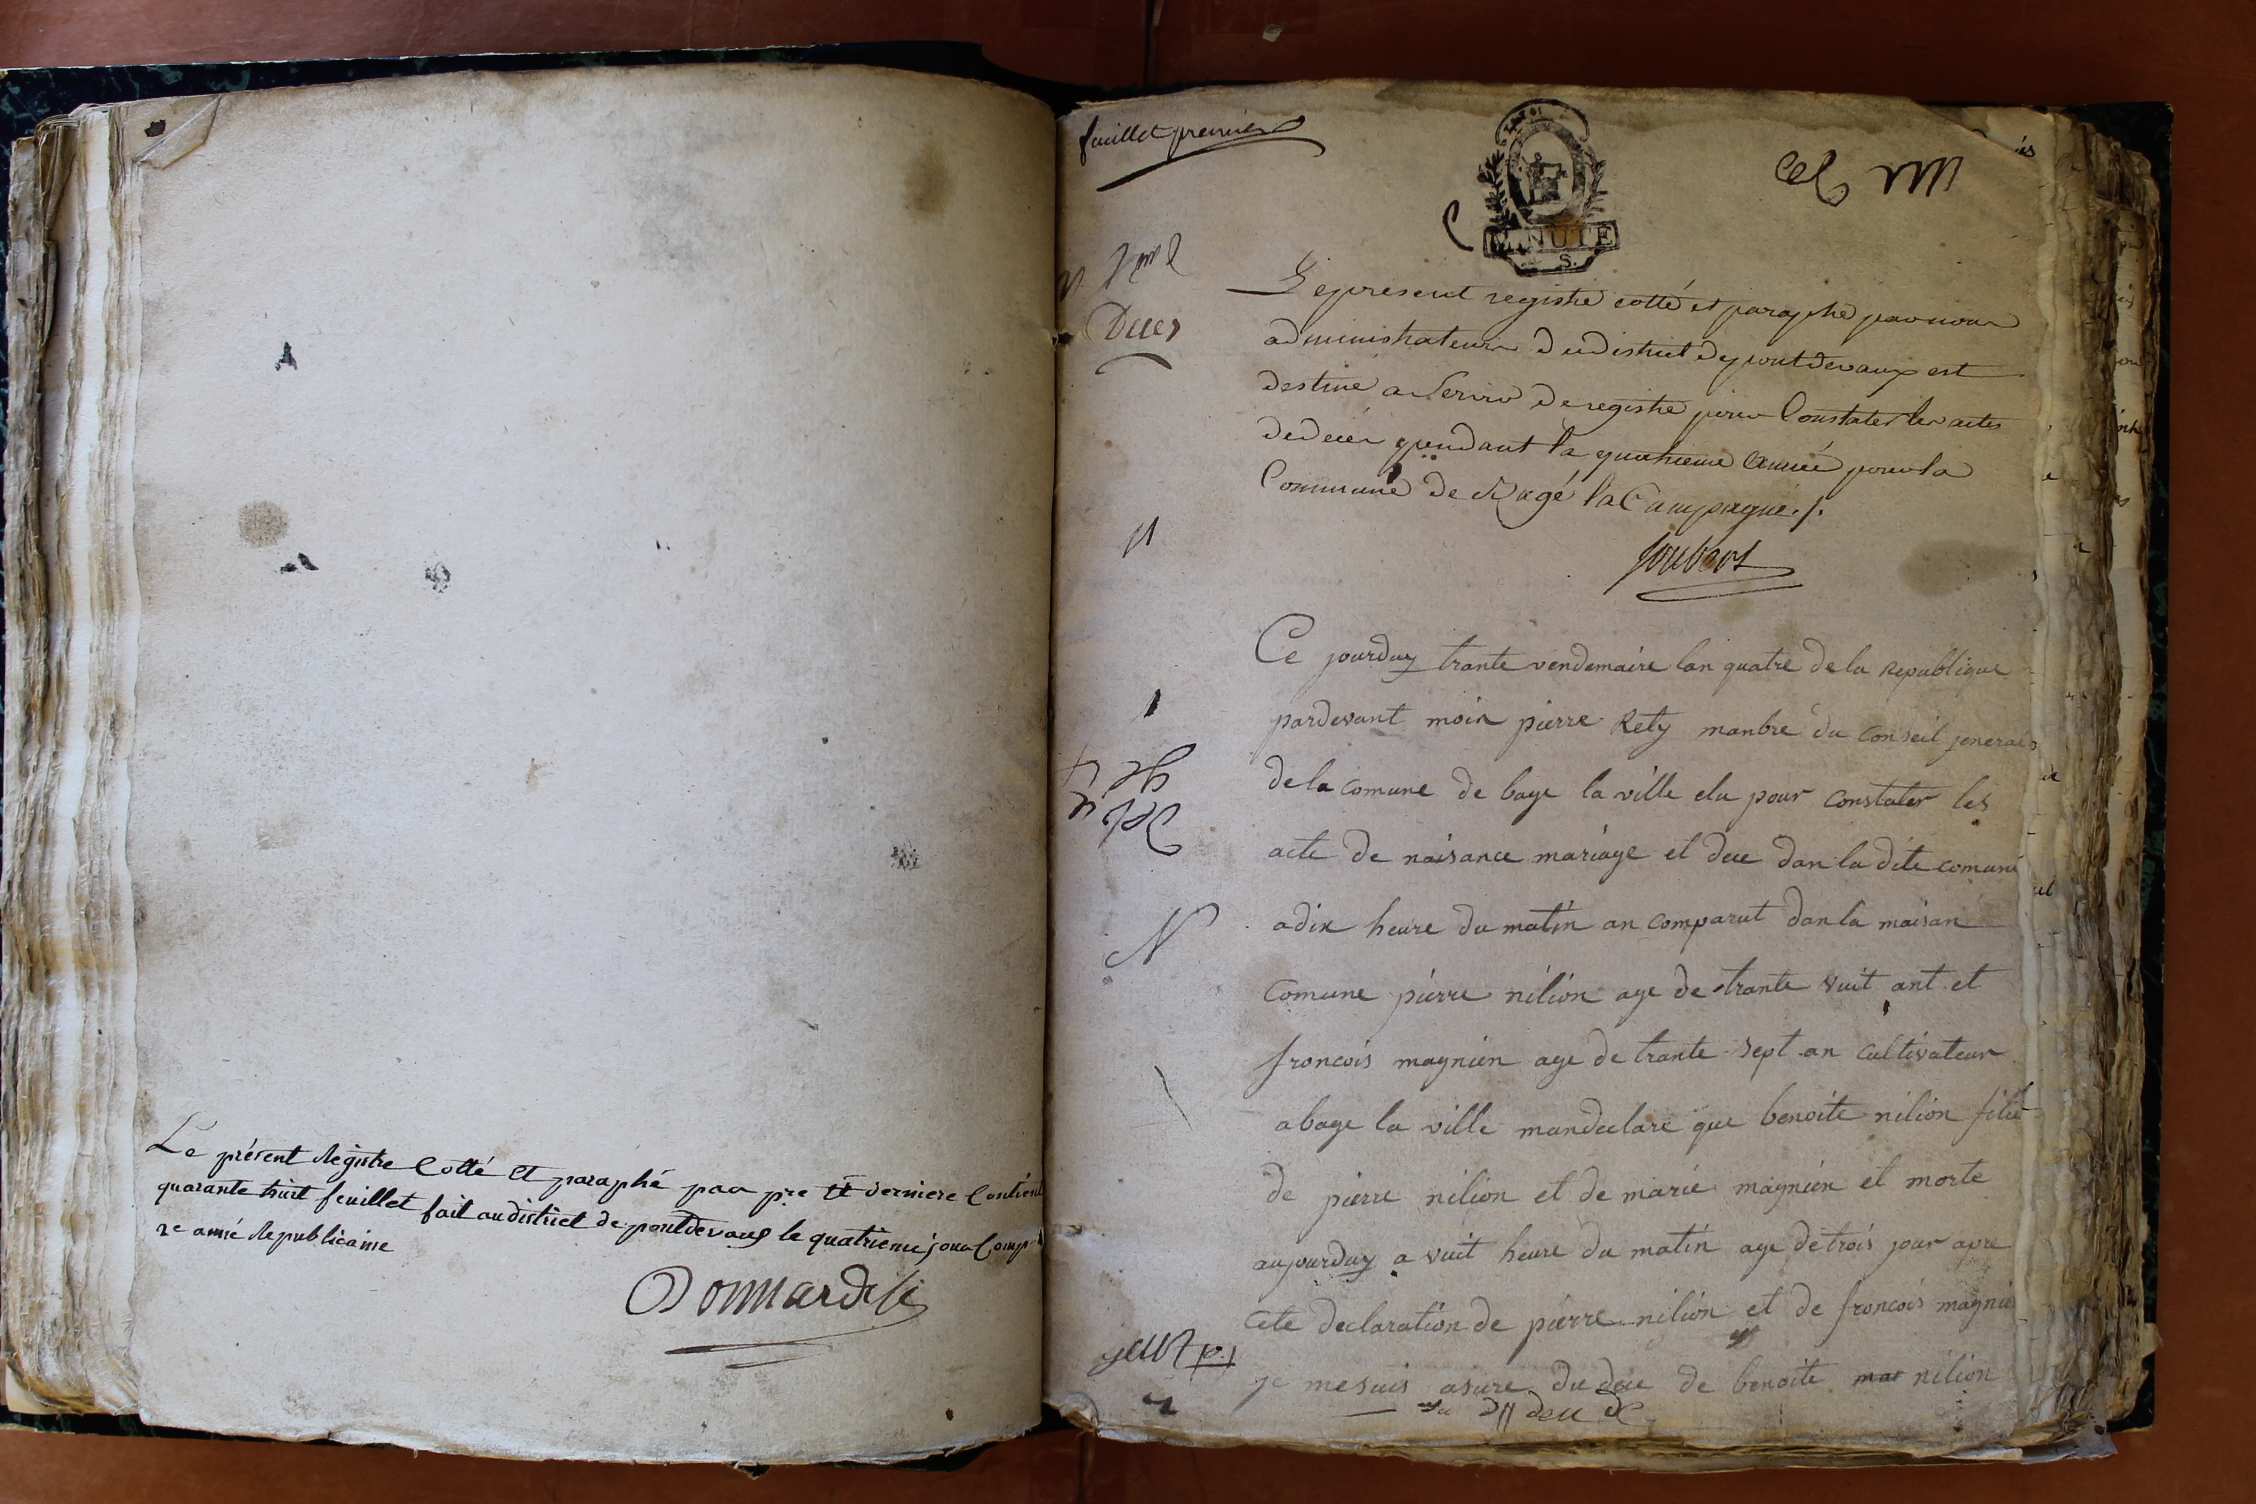 Le présent Registre Cotté et paraphé par pre et derniere Contient
quarante huit feuillet fait au district de pontdevaux le quatrieme jour Comp
re année Republicaine
feuillet premier
LA LOI
MINUTE
S.
Deces
Le present registre cotté et paraphé par nous
administrateur du district de pont devaux est
destiné a Servir de registre pour Constater les actes
de deces pendant la quatrieme année pour la
Commune de Bagé la Campagne ./.
Joubert
Ce jourduy trante vendemaire lan quatre de la republique
pardevant moin pierre Rety manbre du conseil jeneral
de la comune de bage la ville elu pour constater les
acte de naisance mariage et dece dan la dite comune
a dix heure du matin an comparut dan la maisan
comune pierre nilion age de trante vuit ant et
froncois magnien age de trante sept an cultivateur
a bage la ville mandeclare que benoite nilion filie
de pierre nilion et de marie magnien et morte
aujourduy a vuit heure du matin age de trois jour apre
cete declaration de pierre nilion et de froncois magnien
je mesuis asure du dece de benoite nilion